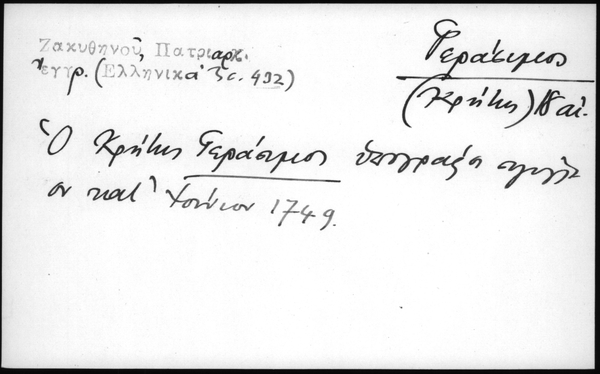 Ζακυθηνοῦ, Πατριαρχ.
ἔγγρ. (Ἑλληνικὰ 5 σ. 492)
Γεράσιμος
(Κρήτης) 18 αἰ.
Ὁ Κρήτης Γεράσιμος ὑπογράφει
ον κατ' Ἰούνιον 1749.